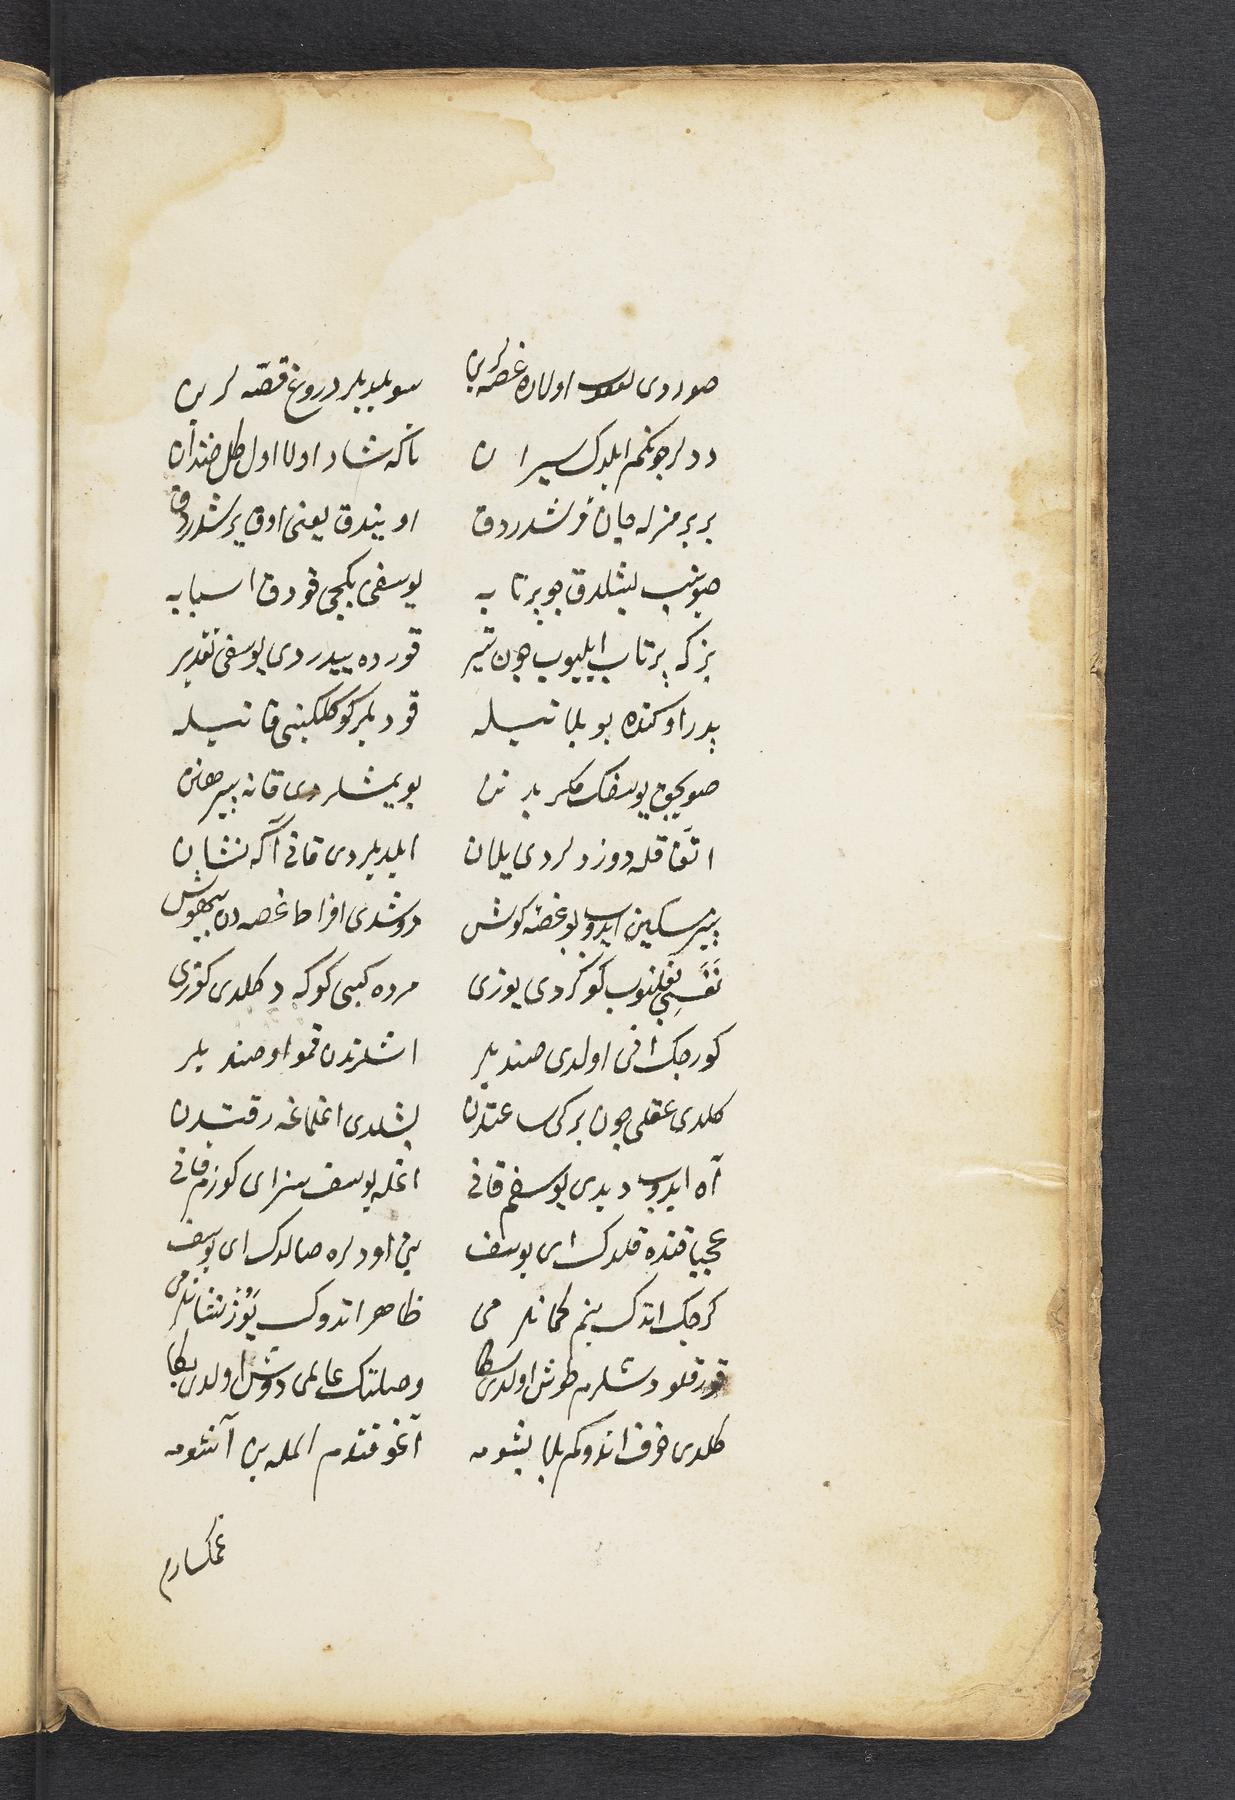 صوردی اولاره غصه لرین سویلدیلر دروغ قصه لرین
ددلر چونکم ایلدک سیران تاکه شاد اولا اول گل خندان
بر بر منزله جان ارشدردق اویندق یعنی اوق یرشدردق
صوینب بشلدق چو پرتابه یوسفی بکجی قودق اسبابه
بز که پرتاب ایلیوب چون تیر قورده ییدردی یوسفی تقدیر
پدر اوکنده بو بلا نیله قودیلر کوکلکینی قانیله
صویجق یوسفک مکر بدنن بویمشلردی قانه پیرهنن
اتفاقله دوزدلردی یلان ایلدیلردی قانی آکه نشان
پیر مسکین ایدوب بو غصه کوش دوشدی افراط غصه دن بیهوش
نفسی کوکردی یوزی مرده کبی کوکه دکلدی کوزی
کورجک انی اولدی صندیلر اشلرندن قمو اوصندیلر
کلدی عقلی چون بر ایکی ساعتدن بشلدی اغلماغه رقتدن
آه ایدوب دیدی یوسفم قانی اغله یوسف سز ای کوزم قانی
عجبا قنده قلدک ای یوسف بنی اودلره صالدک ای یوسف
کرجک اتدک بنم کمانلرمی ظاهر اتدوک یوز نشانلرمی
قورقلو دشلرم طوش اولدی بکا وصلتک عالمی دوش اولدی بکا
کلدی خوف اندوکم بلا بشومه آغو قتدم المله بن آشومه
غمکسارم